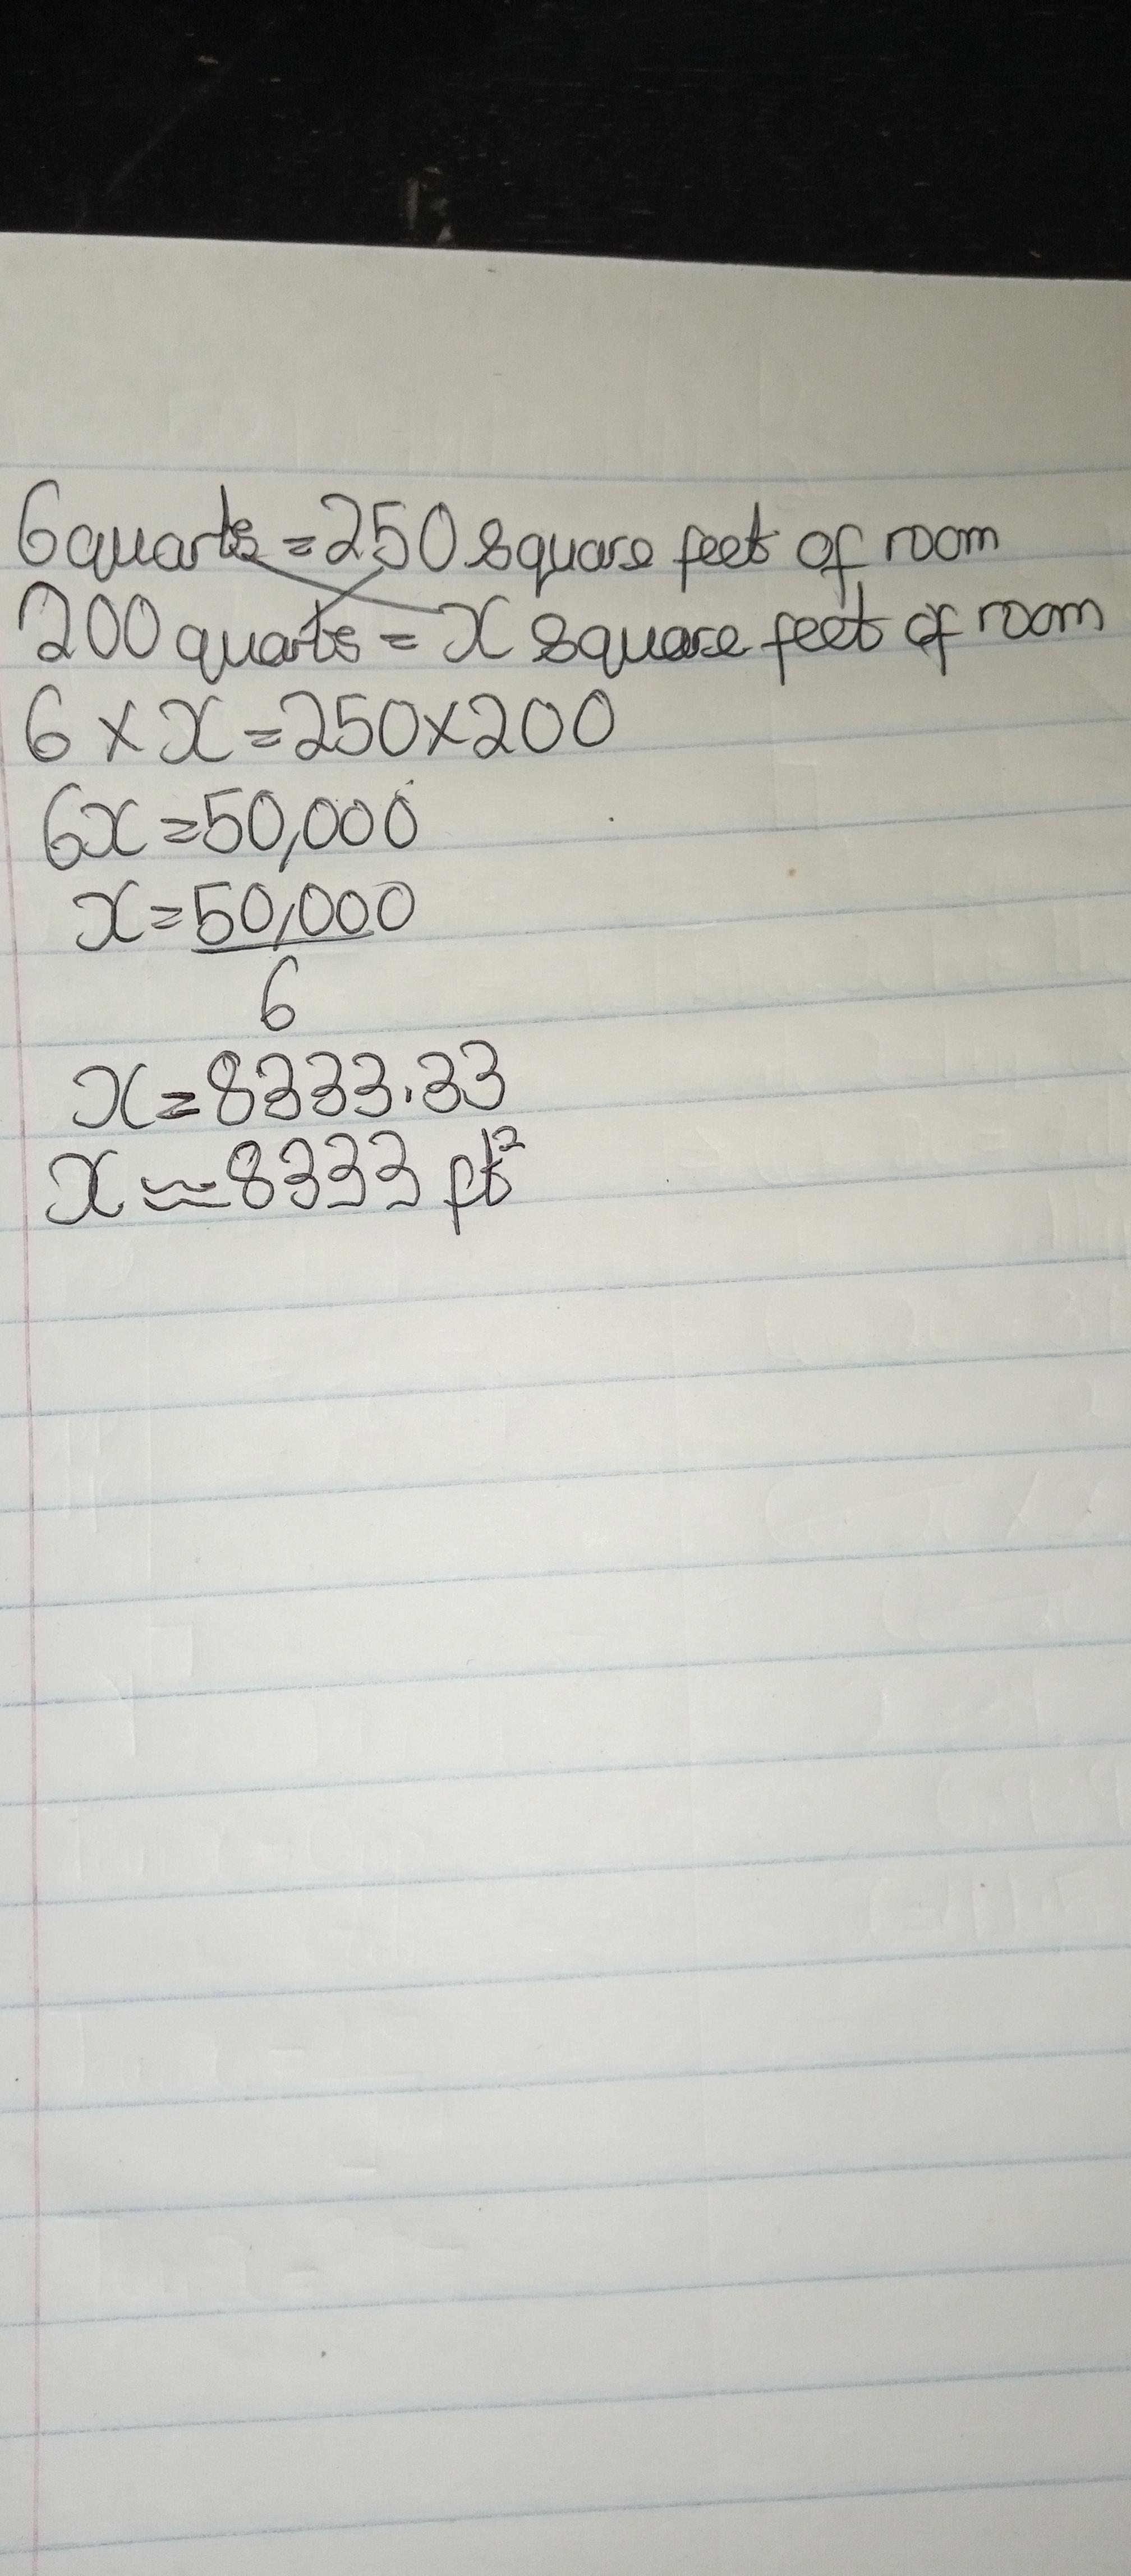 6 quarts = 250 square feet of room
200 quarts = x square feet of room
6 × x = 250 × 200
6x = 50,000
x = 50,000
6
x = 8333.33
x ≈ 8333 ft²